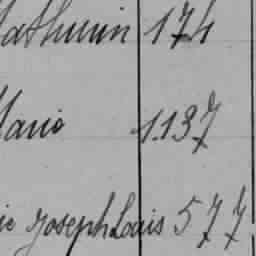 Mathurin 174
Marie 1137
Joseph Louis 577